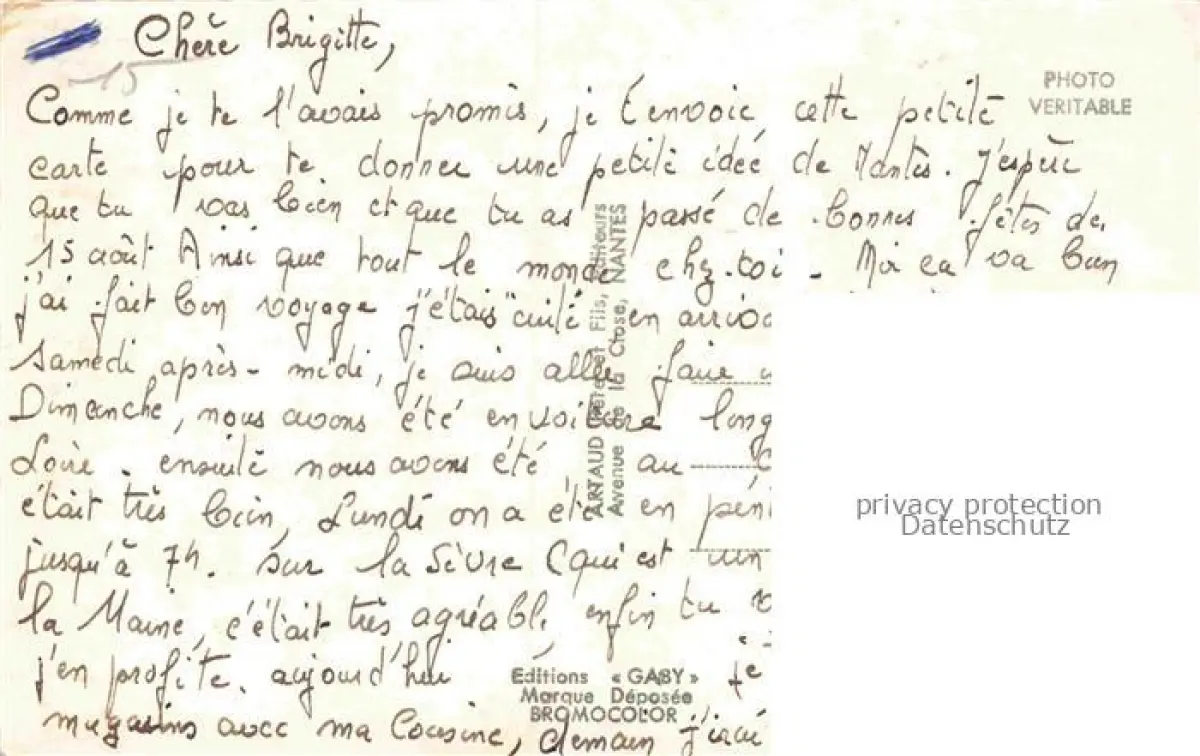 Chère Brigitte,
15
PHOTO
VERITABLE
Comme je te l'avais promis, je t'envoie cette petite
carte pour te donner une petite idée de Nantes. J'espère
que tu vas bien et que tu as passé de bonnes fêtes de
15 août Ainsi que tout le monde chez toi - Moi ça va bien
j'ai fait bon voyage j'étais "cuite" en
Samedi après-midi, je suis allée faire
Dimanche, nous avons été en voiture long
Loire. ensuite nous avons été au
était très bien, Lundi on a été en péni
jusqu'à 7h. sur la Sèvre (qui est un
la Maine, c'était très agréable, enfin tu
j'en profite. aujourd'hui je
magasins avec ma Cousine, demain j'irai
ARTAUD Père et Fils, Editeurs
Avenue de la Close, NANTES
Editions « GABY »
Marque Déposée
BROMOCOLOR
privacy protection
Datenschutz